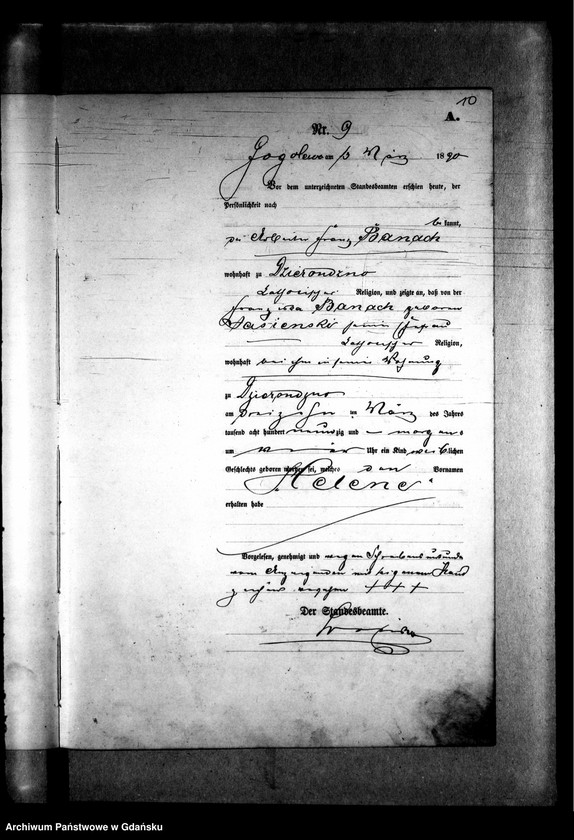 10
A.
Nr. 9
am März 1890
Vor dem unterzeichneten Standesbeamten erschien heute, der
Persönlichkeit nach
bekannt,
der Arbeiter Franz Banach
wohnhaft zu Dzierondzno
katholischer Religion, und zeigte an, daß von der
Franziska Banach geborene
seiner Ehefrau
katholischer Religion,
wohnhaft bei ihm in seiner Wohnung
zu Dzierondzno
am dreizehn ten März des Jahres
tausend acht hundert neunzig und — morgens
um Uhr ein Kind weiblichen
Geschlechts geboren worden sei, welches den Vornamen
Helene
erhalten habe
Vorgelesen, genehmigt und wegen Schreibensunkunde
vom Anzeigenden mit Hand
+++
Der Standesbeamte.
Archiwum Państwowe w Gdańsku